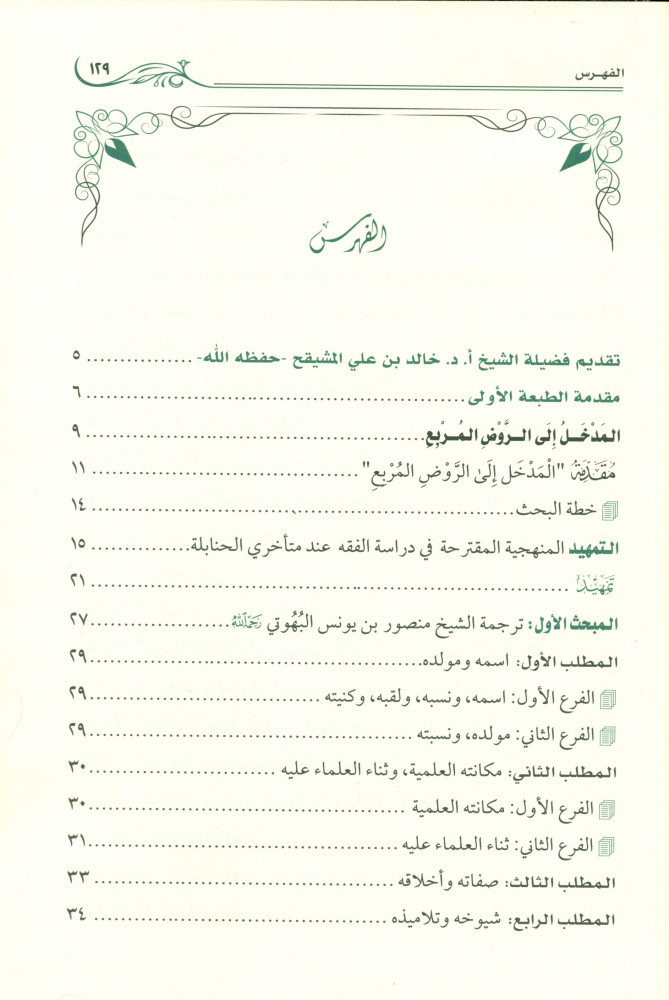 الفهرس ١٢٩
الفهرس
تقديم فضيلة الشيخ أ. د. خالد بن علي المشيقح -حفظه الله- ................ ٥
مقدمة الطبعة الأولى ................ ٦
المَدْخَـلُ إِلَى الـرَّوْضِ المُـرْبِعِ ................ ٩
مُقَدِّمَةُ "الْمَدْخَل إِلَىٰ الرَّوْضِ المُرْبِعِ" ................ ١١
خطة البحث ................ ١٤
التمهيد المنهجية المقترحة في دراسة الفقه عند متأخري الحنابلة ................ ١٥
تمهيد ................ ٢١
المبحث الأول: ترجمة الشيخ منصور بن يونس البُهُوتي رَحِمَهُ اللَّهُ ................ ٢٧
المطلب الأول: اسمه ومولده ................ ٢٩
الفرع الأول: اسمه، ونسبه، ولقبه، وكنيته ................ ٢٩
الفرع الثاني: مولده، ونسبته ................ ٢٩
المطلب الثاني: مكانته العلمية، وثناء العلماء عليه ................ ٣٠
الفرع الأول: مكانته العلمية ................ ٣٠
الفرع الثاني: ثناء العلماء عليه ................ ٣١
المطلب الثالث: صفاته وأخلاقه ................ ٣٣
المطلب الرابع: شيوخه وتلاميذه ................ ٣٤